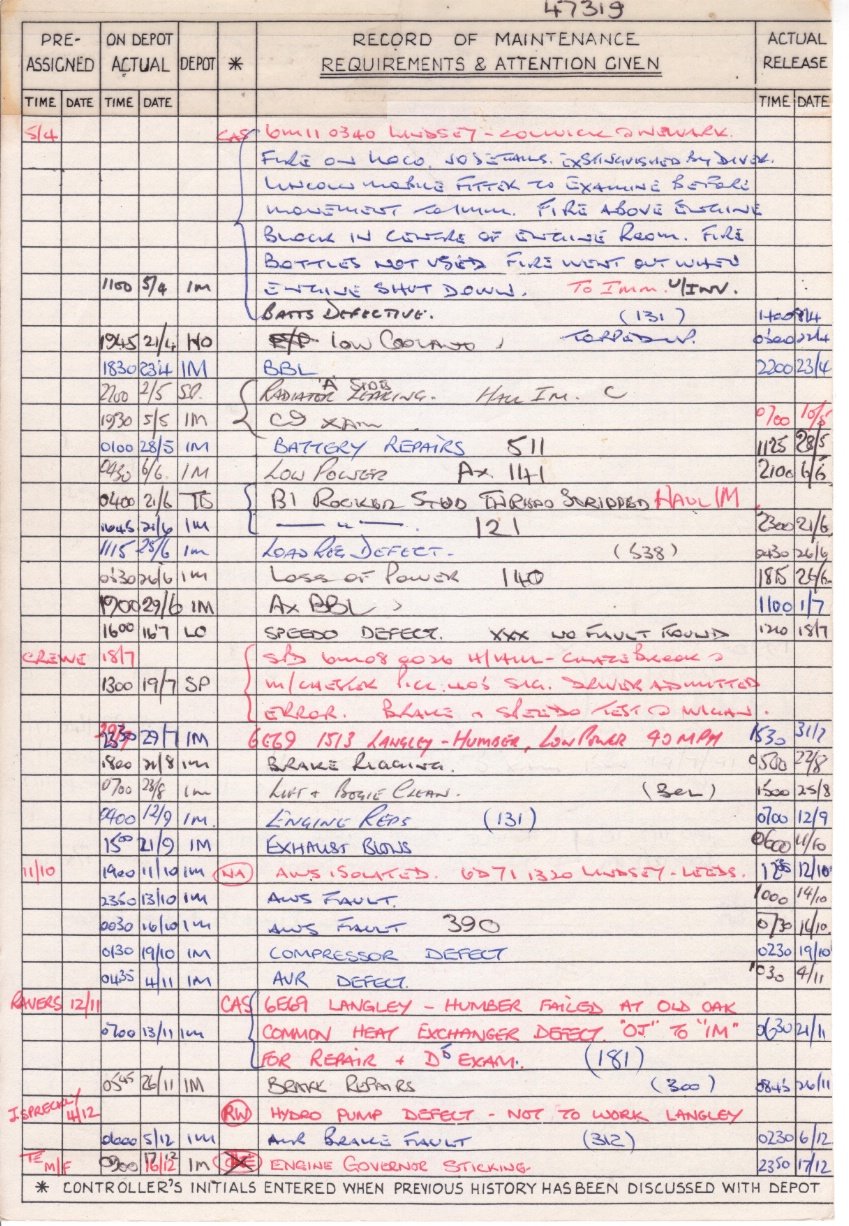 47319
PRE-ASSIGNED ON DEPOT ACTUAL DEPOT * RECORD OF MAINTENANCE REQUIREMENTS & ATTENTION GIVEN ACTUAL RELEASE
TIME DATE TIME DATE TIME DATE
5/4 CAS 6M11 0340 LINDSEY - COLWICK NEWARK.
FIRE ON LOCO, NO DETAILS. EXSTINGUISHED BY DIVER.
LINCOLN MOBILE FITTER TO EXAMINE BEFORE
MOVEMENT TO IMM. FIRE ABOVE ENGINE
BLOCK IN CENTRE OF ENGINE ROOM. FIRE
BOTTLES NOT USED FIRE WENT OUT WHEN
1100 5/4 IM ENGINE SHUT DOWN. TO IMM. U/INV.
BATTS DEFECTIVE. (131) 1400 8/4
1945 21/4 HO LOW COOLANT 22/4
1830 23/4 IM BBL 2200 23/4
2200 2/5 SP. RADIATOR "A" SIDE LEAKING. HAUL IM. C
1930 5/5 IM XAM 0700 10/5
0100 28/5 IM BATTERY REPAIRS 511 1125 28/5
0430 6/6. IM LOW POWER AX. 141 2100 6/6
0400 21/6 TE B1 ROCKER STUD THREAD STRIPPED HAUL IM
1645 21/6 IM — " — . 121 2300 21/6
1115 25/6 IM LOAD REG. DEFECT. (538) 0430 26/6
0530 26/6 IM LOSS OF POWER 140 1815 26/6
1900 29/6 IM AX BBL 1100 1/7
1600 16/7 LO SPEEDO DEFECT. XXX NO FAULT FOUND 1210 18/7
CREWE 18/7 SPD 6M08 0026 H/HILL - GLAZEBROOK
1300 19/7 SP SIG. DRIVER ADMITTED
ERROR. BRAKE & SPEEDO TEST WIGAN.
29/7 IM 6E69 1513 LANGLEY - HUMBER, LOW POWER 40 MPH 1530 31/7
1800 21/8 IM BRAKE RIGGING. 0500 22/8
0700 23/8 IM LIFT & BOGIE CLEAN. 1500 25/8
0400 12/9 IM. ENGINE REPS (131) 0700 12/9
1500 21/9 IM EXHAUST BLOWS 0600
11/10 1900 11/10 IM NA AWS ISOLATED. 6D71 1320 LINDSEY - LEEDS. 12/10
2350 13/10 IM AWS FAULT. 1000 14/10
0030 16/10 IM AWS FAULT 390 0730 16/10
0130 19/10 IM COMPRESSOR DEFECT 0230 19/10
0435 4/11 IM AVR DEFECT. 1030 4/11
RAVERS 12/11 CAS 6E69 LANGLEY - HUMBER FAILED AT OLD OAK
0700 13/11 IM COMMON HEAT EXCHANGER DEFECT. "OJ" TO "IM" 0630 21/11
FOR REPAIR + D5 EXAM. (181)
0545 26/11 IM BRAKE REPAIRS (300) 0845 26/11
4/12 RW HYDRO PUMP DEFECT - NOT TO WORK LANGLEY
0600 5/12 IM AIR BRAKE FAULT (312) 0230 6/12
TE M/F 0900 17/12 16/12 IM ENGINE GOVERNOR STICKING. 2350 17/12
* CONTROLLER'S INITIALS ENTERED WHEN PREVIOUS HISTORY HAS BEEN DISCUSSED WITH DEPOT